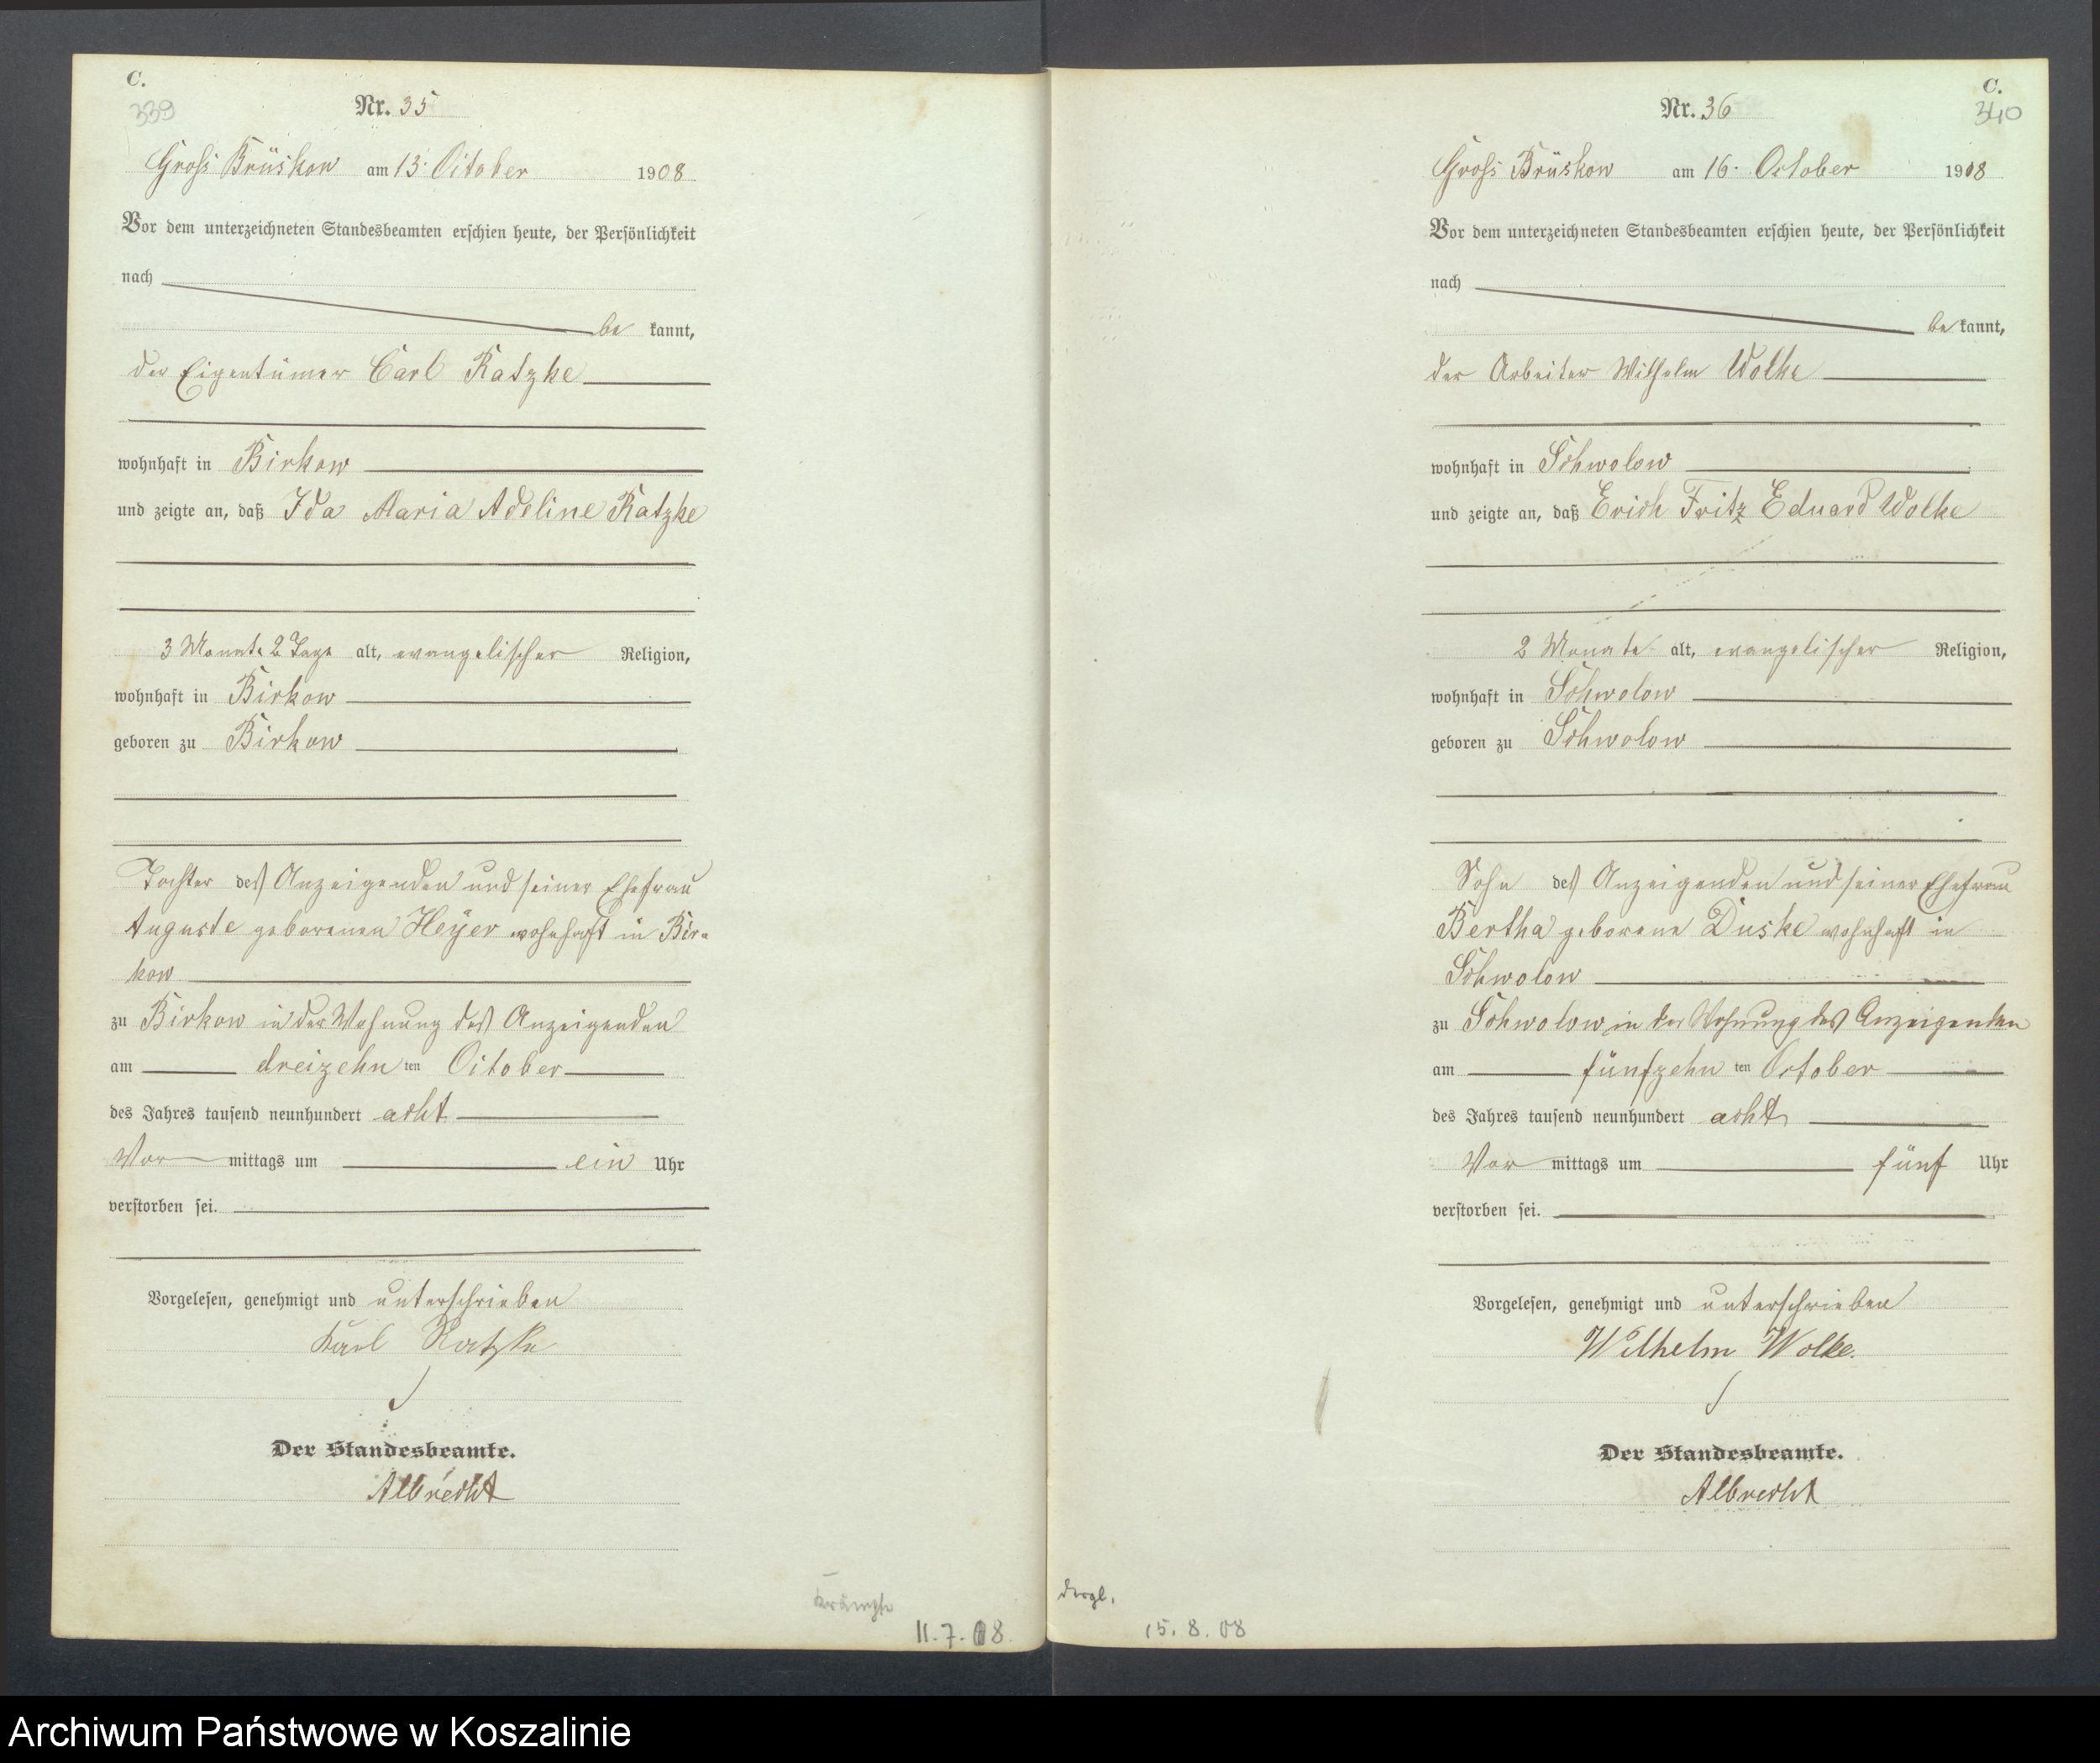 C.
339
Nr. 35
Gross Brüskow am 13. October 1908
Vor dem unterzeichneten Standesbeamten erschien heute, der Persönlichkeit
nach
be kannt,
der Eigentümer Carl Ratzke
wohnhaft in Birkow
und zeigte an, daß Ida Maria Adeline Ratzke
3 Monate 2 Tage alt, evangelischer Religion,
wohnhaft in Birkow
geboren zu Birkow
Tochter des Anzeigenden und seiner Ehefrau
Auguste geborenen Heyer wohnhaft in Bir-
kow
zu Birkow in der Wohnung des Anzeigenden
am dreizehn ten October
des Jahres tausend neunhundert acht
Vor mittags um ein Uhr
verstorben sei.
Vorgelesen, genehmigt und unterschrieben
Karl Ratzke
Der Standesbeamte.
Albrecht
Krämpfe
11.7.08
C.
340
Nr. 36
Gross Brüskow am 16. October 1908
Vor dem unterzeichneten Standesbeamten erschien heute, der Persönlichkeit
nach
be kannt,
der Arbeiter Wilhelm Wolke
wohnhaft in Schwolow
und zeigte an, daß Erich Fritz Eduard Wolke
2 Monate alt, evangelischer Religion,
wohnhaft in Schwolow
geboren zu Schwolow
Sohn des Anzeigenden und seiner Ehefrau
Bertha geborene Duske wohnhaft in
Schwolow
zu Schwolow in der Wohnung des Anzeigenden
am fünfzehn ten October
des Jahres tausend neunhundert acht
Vor mittags um fünf Uhr
verstorben sei.
Vorgelesen, genehmigt und unterschrieben
Wilhelm Wolke.
Der Standesbeamte.
Albrecht
dergl.
15.8.08
Archiwum Państwowe w Koszalinie